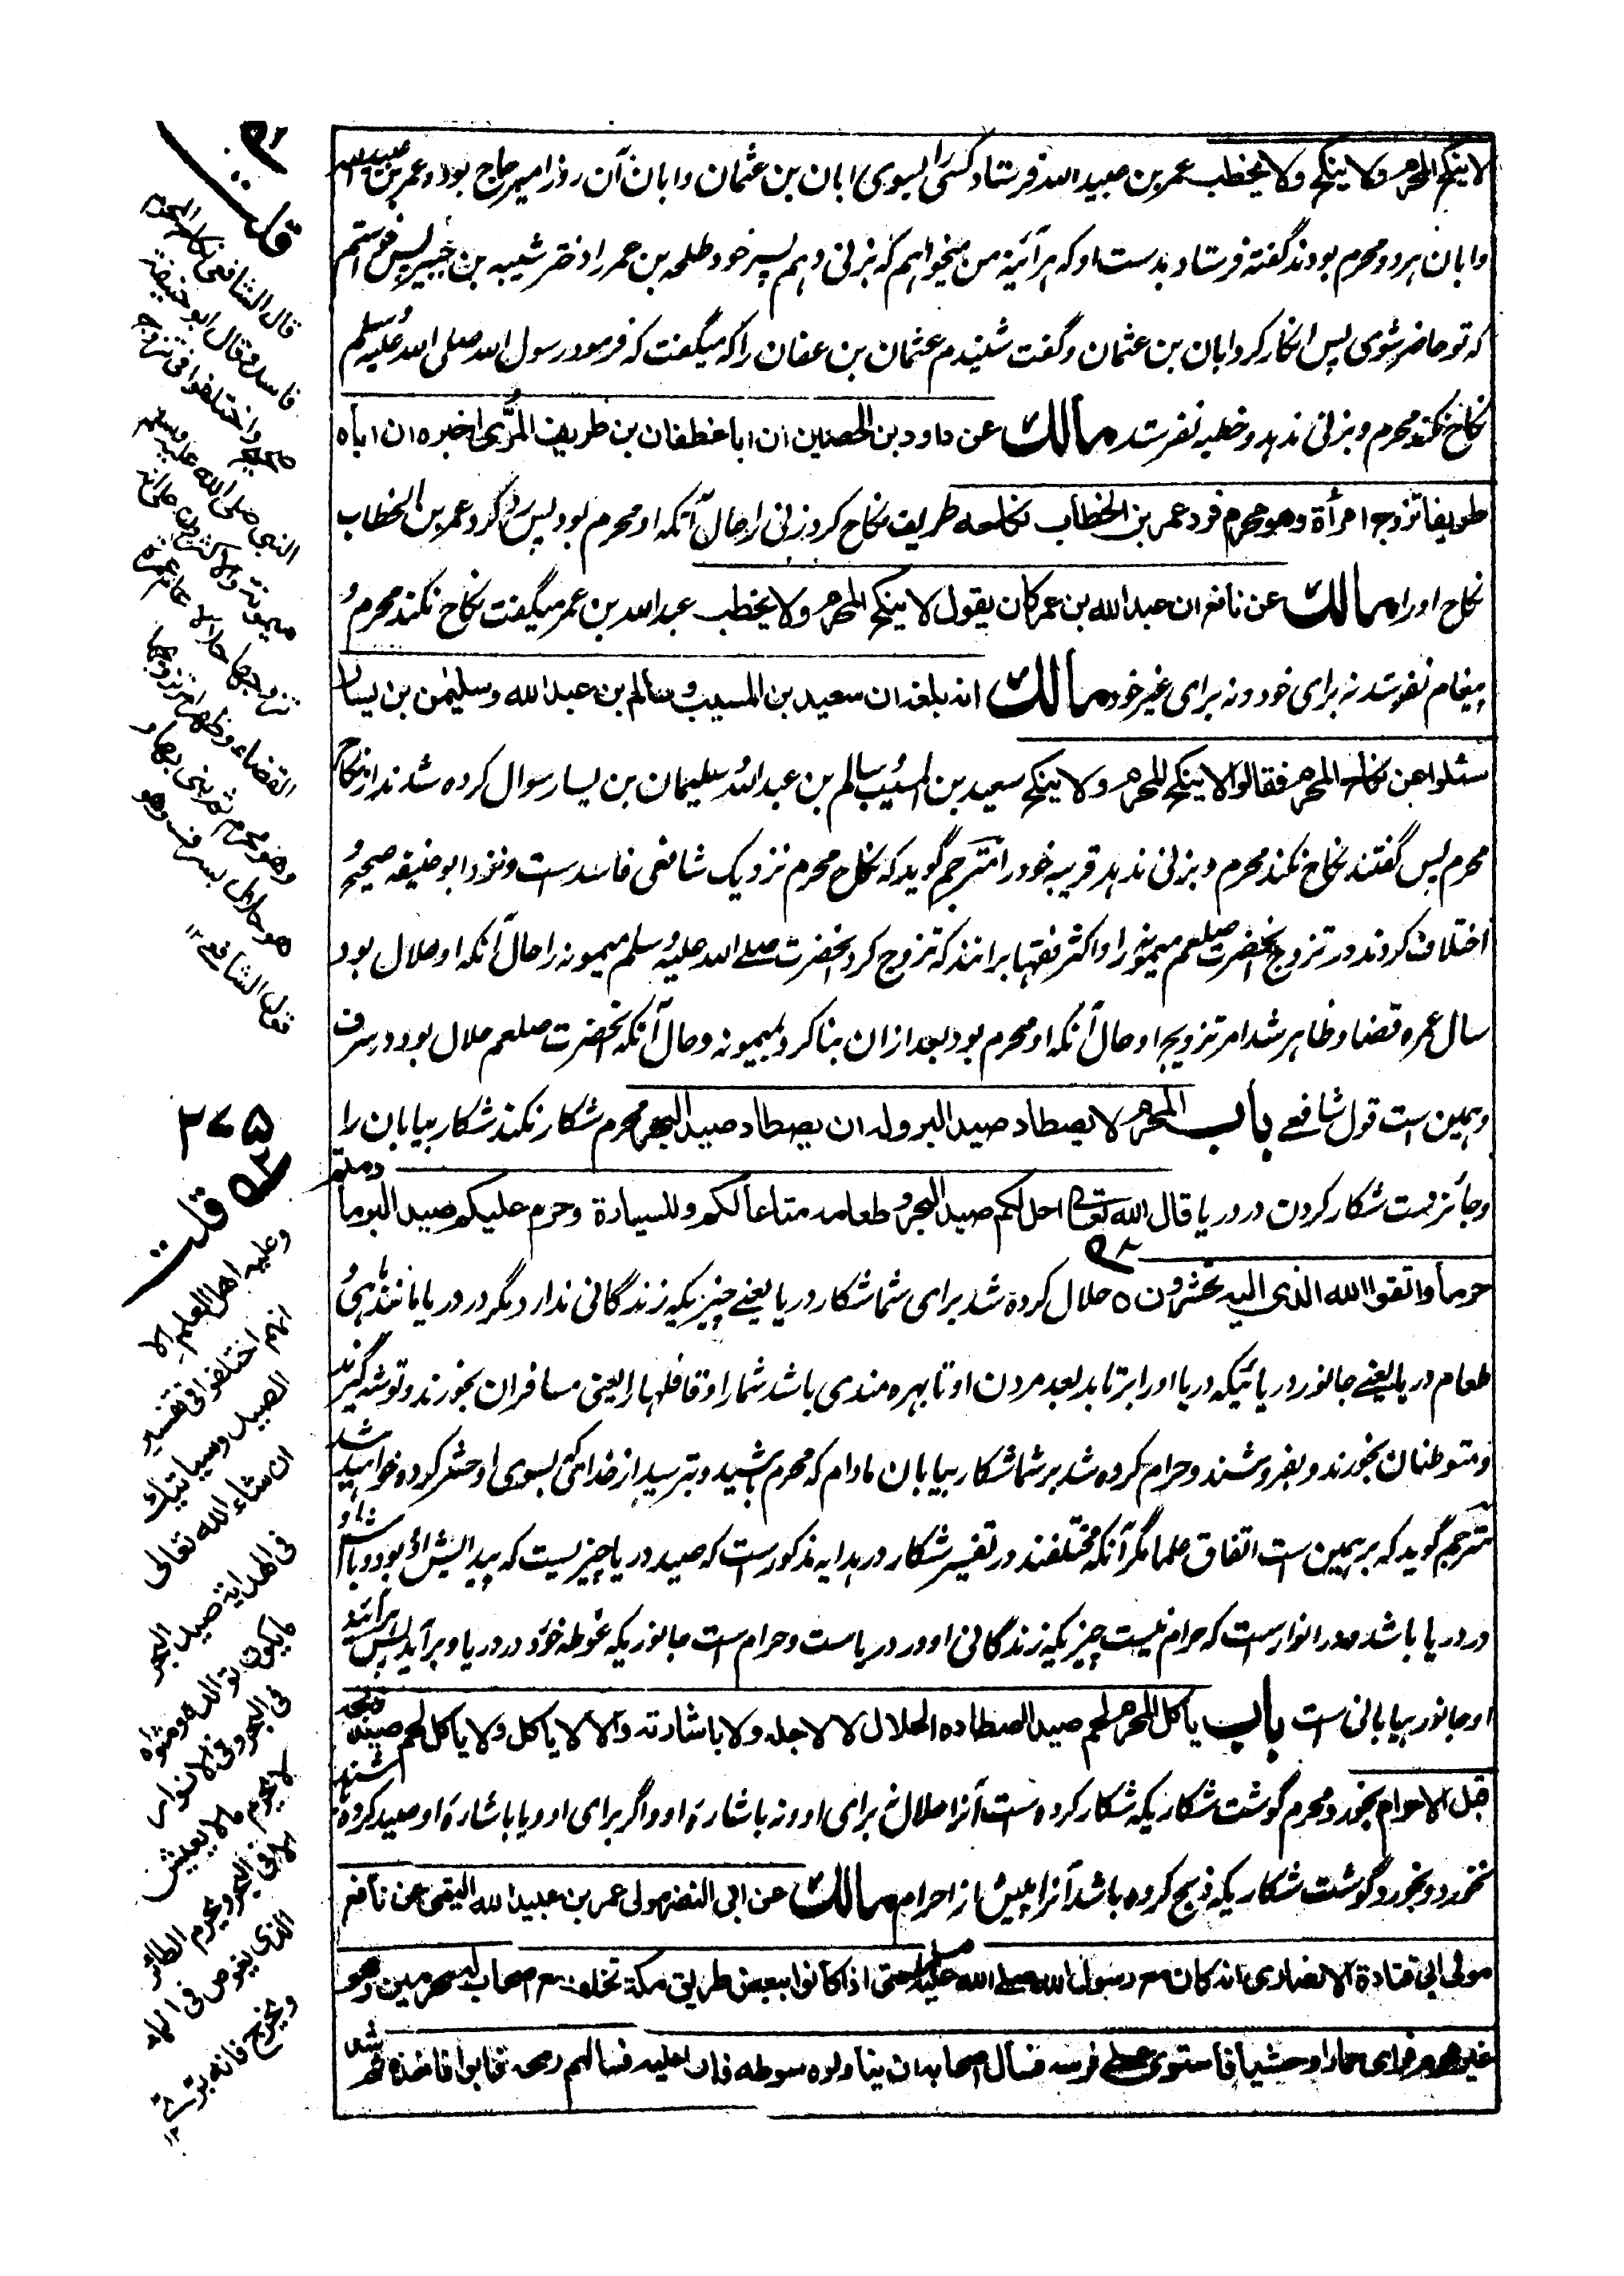 لا ینکح المحرم ولا ینکح ولا یخطب عمر بن عبید الله فرستاد کسی را بسوی ابان بن عثمان و ابان آن روز امیر حاج بود و عمر بن عبید الله
و ابان هر دو محرم بودند گفته فرستاد بدست او که هر آئینه من میخواهم که بزنی دهم پسر خود طلحه بن عمر را دختر شیبه بن جبیر پس خواستم
که تو حاضر شوی پس انکار کرد ابان بن عثمان و گفت شنیدم عثمان بن عفان را که میگفت که فرمود رسول الله صلی الله علیه وسلم
نکاح نکند محرم و بزنی ندهد و خطبه نفرستد مالك عن داود بن الحصین ان ابا غطفان بن طریف المری اخبره ان اباه
طریفا تزوج امرأة وهو محرم فرد عمر بن الخطاب نکاحه طریف نکاح کرد زنی را حال آنکه او محرم بود پس رد کرد عمر بن الخطاب
نکاح او را مالك عن نافع ان عبد الله بن عمر کان یقول لا ینکح المحرم ولا یخطب عبد الله بن عمر میگفت نکاح نکند محرم و
پیغام نفرستد نه برای خود و نه برای غیر خود مالك انه بلغه ان سعید بن المسیب و سالم بن عبد الله وسلیمن بن یسار
سئلوا عن نکاح المحرم فقالوا لا ینکح المحرم ولا ینکح سعید بن المسیب و سالم بن عبد الله و سلیمان بن یسار سوال کرده شدند از نکاح
محرم پس گفتند نکاح نکند محرم و بزنی ندهد قریبه خود را مترجم گوید که نکاح محرم نزدیک شافعی فاسد ست و نزد ابو حنیفه صحیح و
اختلاف کردند در تزوج آنحضرت صلعم میمونه را و اکثر فقها برانند که تزوج کرد آنحضرت صلے الله علیه وسلم میمونه را حال آنکه او حلال بود
سال عمره قضا و ظاهر شد امر تزویج او حال آنکه او محرم بود بعد ازان بنا کرد بمیمونه و حال آنکه آنحضرت صلعم حلال بود در سرف
و همین ست قول شافعے باب المحرم لا یصطاد صید البر وله ان یصطاد صید البحر محرم شکار نکند شکار بیابان را
و جائز ست شکار کردن در دریا قال الله تعالی احل لکم صید البحر وطعامه متاعا لکم وللسیارة وحرم علیکم صید البر ما دمتم
حرما واتقوا الله الذی الیه تحشرون ه حلال کرده شد برای شما شکار دریا یعنے چیزیکه زندگانی ندارد مگر در دریا مانند ماهی و
طعام دریا یعنے جانور دریائیکه دریا او را برتابد بعد مردن او تا بهره مندی باشد شما را و قافلها را یعنی مسافران بخورند و توشه گیرند
و متوطنان بخورند و بفروشند و حرام کرده شد بر شما شکار بیابان مادام که محرم باشید و بترسید از خدا که بسوی او حشر کرده خواهید شد
مترجم گوید که بر همین ست اتفاق علما مگر آنکه مختلفند در تفسیر شکار در هدایه مذکور ست که صید دریا چیزیست که پیدایش او و بود و باش او
در دریا باشد و در انوار ست که حرام نیست چیزیکه زندگانی او در دریاست و حرام ست جانوریکه غوطه خورد در دریا و برآید پس
او جانور بیابانی ست باب یاکل المحرم لحم صید اصطاده الحلال لا لاجله ولا باشارته والا لا یاکل ولا یاکل لحم صید
قبل الاحرام بخورد محرم گوشت شکاریکه شکار کرده ست آنرا حلال نه برای او و نه باشارهٔ او و اگر برای او و یا باشارهٔ او صید کرده
نخورد و بخورد گوشت شکاریکه ذبح کرده باشد آنرا پیش از احرام مالك عن ابی النضر مولی عمر بن عبید الله التیمی عن نافع
مولی ابی قتادة الانصاری انه کان مع رسول الله صلے الله علیه وسلم حتی اذا کانوا ببعض طریق مکة تخلف مع اصحاب له محرمین وهو
غیر محرم فرای حمارا وحشیا فاستوی علے فرسه فسأل اصحابه ان یناولوه سوطه فابوا علیه فسالهم رمحه فابوا فاخذه ثم شد
قلت
قال الشافعی نکاح المحرم
فاسد وقال ابو حنیفة
صحیح واختلفوا فی تزوج
النبی صلی الله علیه وسلم
میمونة والاکثرون علی انه
تزوجها حلالا عام عمرة
القضاء وظهر امر تزوجها
وهو محرم ثم بنی بها و
هو حلال بسرف وهو
قول الشافعی ۱۲
۲۷۵
قلت
وعلیه اهل العلم الا
انهم اختلفوا فی تفسیر
الصید وسیاتیك
ان شاء الله تعالی
فی الهدایة صید البحر
ما یکون توالده ومثواه
فی البحر وفی الانوار
لا یحرم ما لا یعیش
الا فی البحر ویحرم الطائر
الذی یغوص فی الماء
ویخرج فانه بری
۱۲